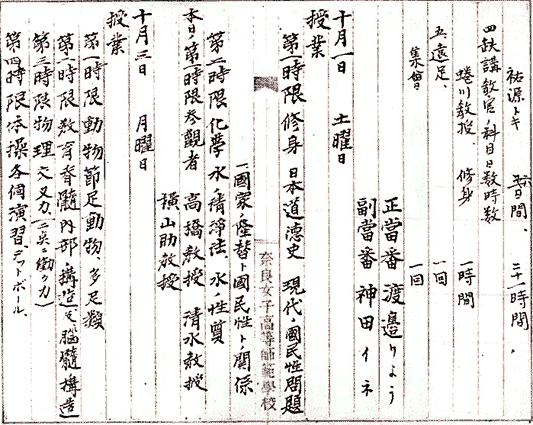 祐源トキ 六日間、 三十一時間、
四 缺講教官ノ科目日数時数
蜷川教授、 修身 一時間
五、遠足、 一回
集會 一回
正當番 渡邉りよう
副當番 神田イネ
十月一日 土曜日
授業
第一時限 修身 日本道德史 現代ノ國民性問題
一、國家ノ隆替ト國民性トノ關係
奈良女子高等師範學校
第二時限 化學 水ノ清淨法、水ノ性質
本日ノ第一時限參觀者 高橋教授 清水教授
横山助教授
十月三日 月曜日
授業
第一時限 動物 節足動物、多足類
第二時限 教育 脊髓内部ノ構造及腦髓構造
第三時限 物理 交叉力、(二点ニ働ク力)
第四時限 体操 各個演習、デットボール、